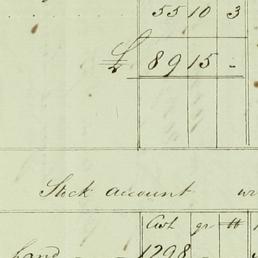 55 10 3
£ 89 15 -
Stock account
Cwt qr ℔
hand - - 1298 -